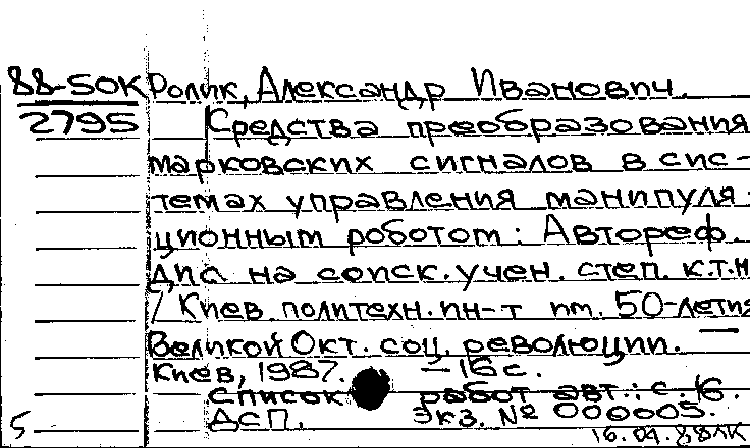 88-50К Ролик, Александр Иванович.
2795 Средства преобразования
марковских сигналов в сис-
темах управления манипуля-
ционным роботом: Автореф.
дис на соиск. учен. степ. к.т.н
/ Киев. политехн. ин-т им. 50-летия
Великой Окт. соц. революции. —
Киев, 1987. – 16 с.
Список работ авт.: с. 16.
5 ДСП. Экз. № 000005.
16.04.88